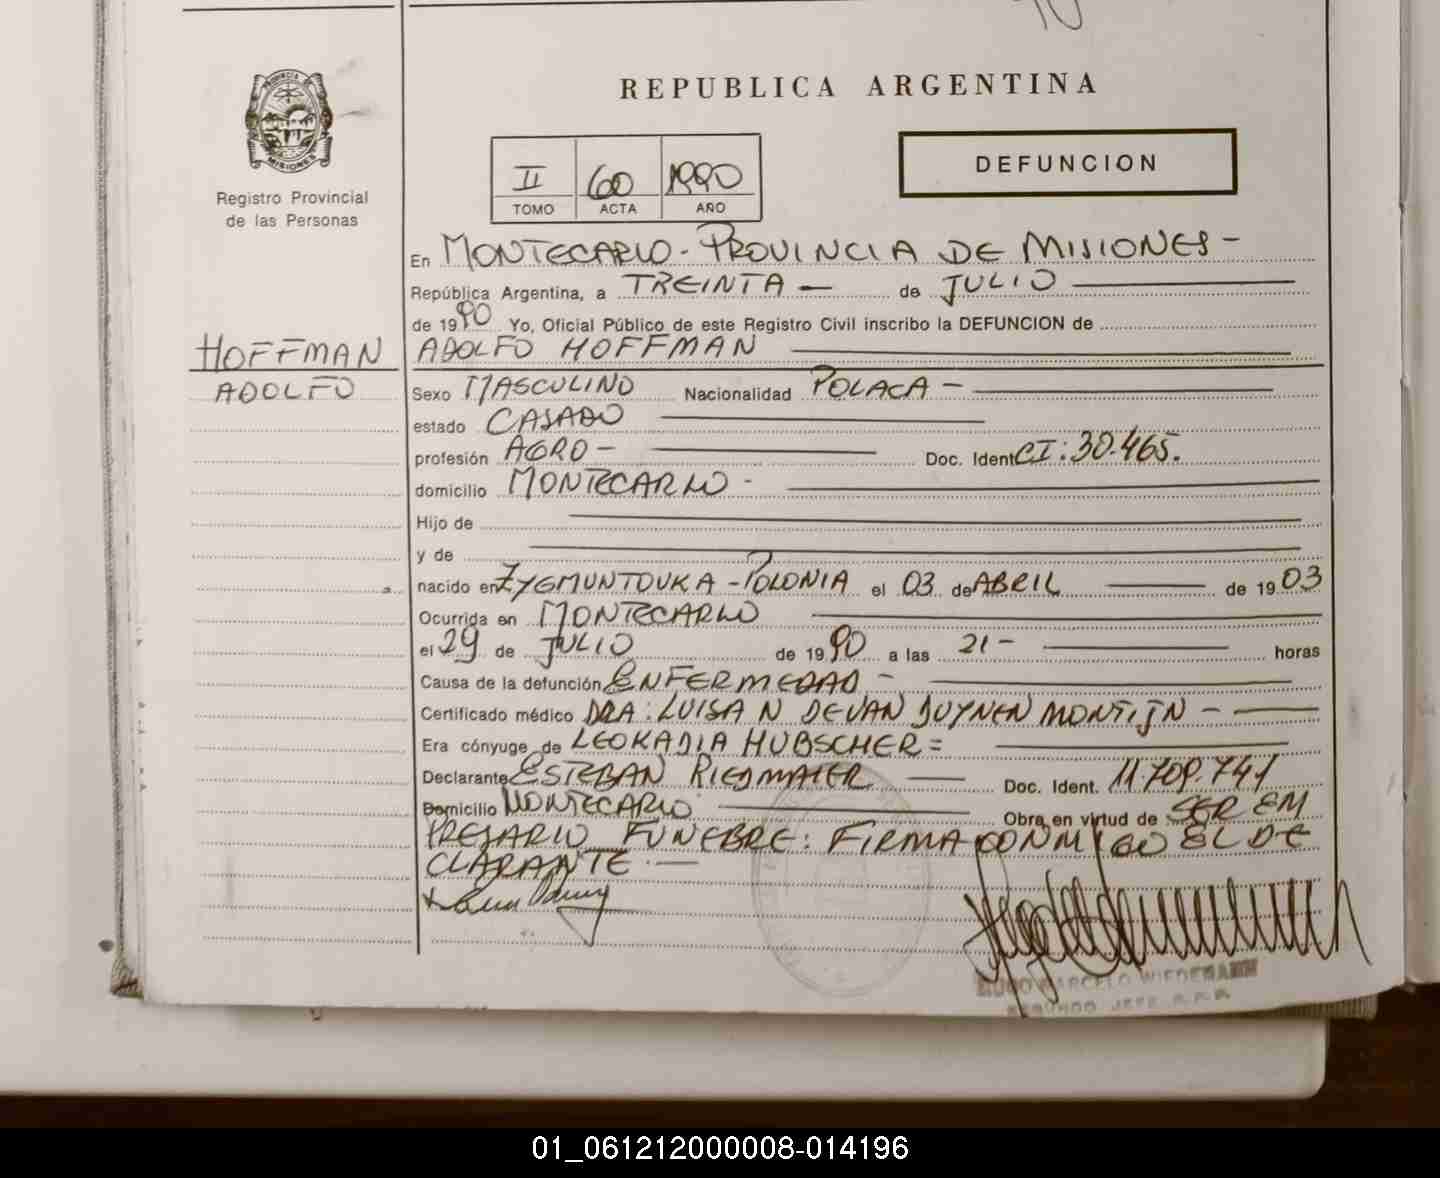 REPUBLICA ARGENTINA
PROVINCIA DE
MISIONES
Registro Provincial
de las Personas
II 60 1990
TOMO ACTA AÑO
DEFUNCION
En MONTECARLO - PROVINCIA DE MISIONES -
República Argentina, a TREINTA — de JULIO
de 1990 Yo, Oficial Público de este Registro Civil inscribo la DEFUNCION de
HOFFMAN
ADOLFO
ADOLFO HOFFMAN
Sexo MASCULINO Nacionalidad POLACA -
estado CASADO
profesión AGRO - Doc. Ident CI: 30.465.
domicilio MONTECARLO -
Hijo de
y de
nacido en ZYGMUNTOUKA - POLONIA el 03 de ABRIL de 1903
Ocurrida en MONTECARLO
el 29 de JULIO de 1990 a las 21 - horas
Causa de la defunción ENFERMEDAD -
Certificado médico DRA: LUISA N DEVAN DUYNEN MONTIJN -
Era cónyuge de LEOKADIA HUBSCHER =
Declarante ESTEBAN RIEDMAIER Doc. Ident. 11.709.741
Domicilio MONTECARLO Obra en virtud de SER EM
PRESARIO FUNEBRE: FIRMA CONMIGO EL DE
CLARANTE. —
HUGO MARCELO WIEDEMANN
SEGUNDO JEFE R.P.P.
01_061212000008-014196